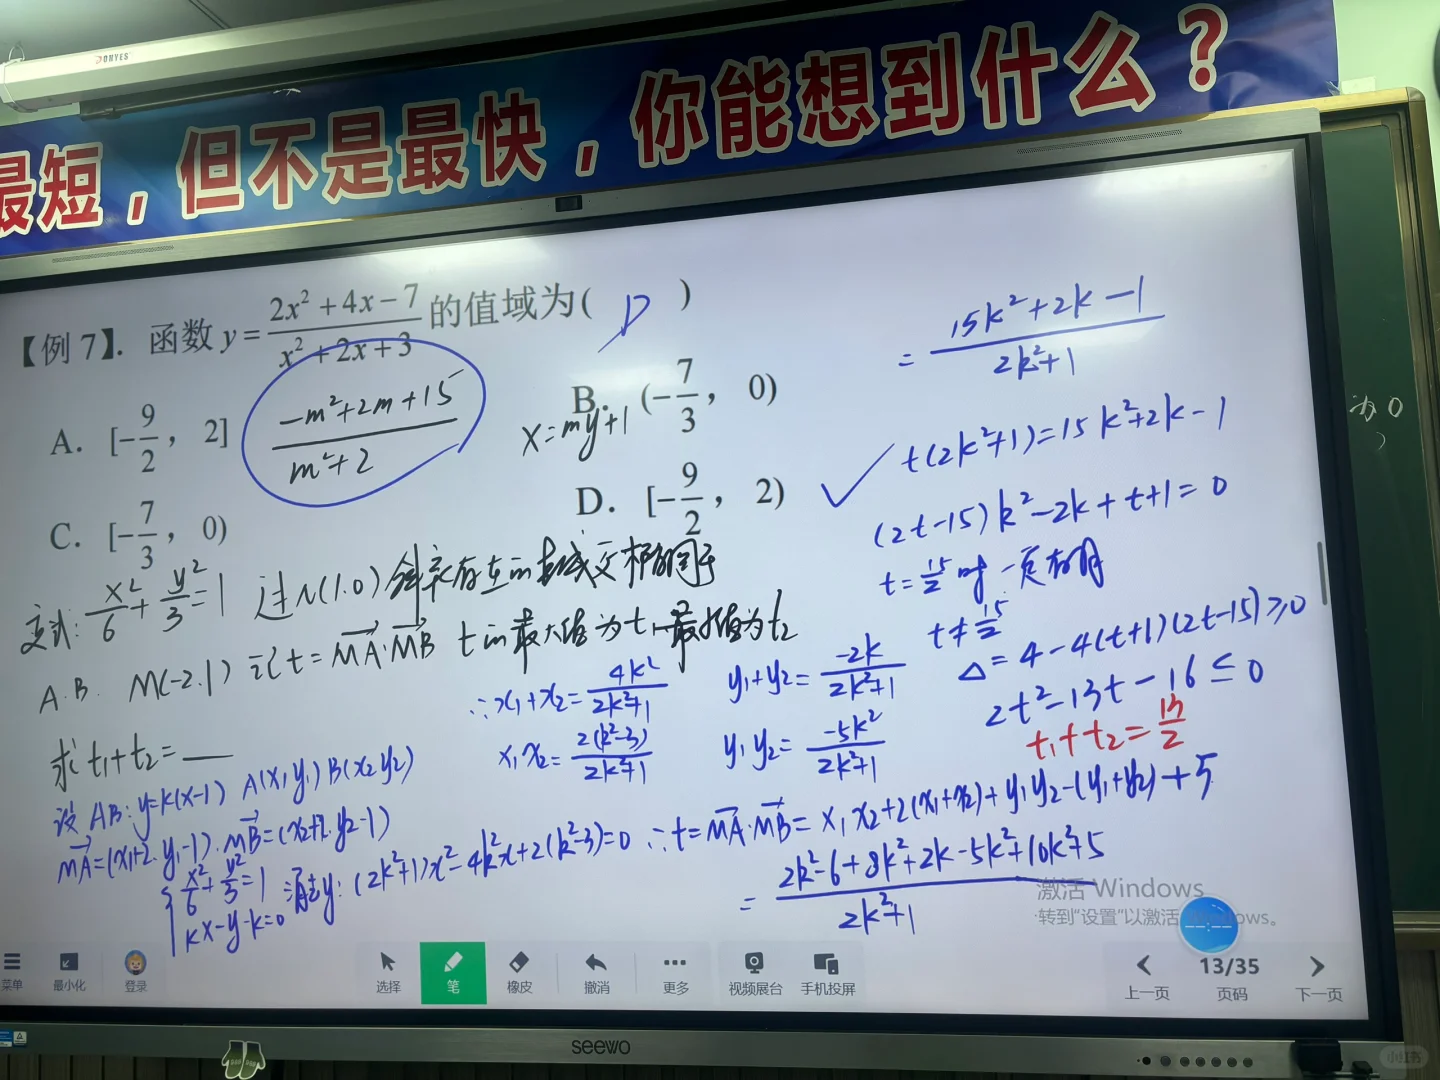 DONYES
最短，但不是最快，你能想到什么？
【例 7】. 函数 y = \frac{2x^2+4x-7}{x^2+2x+3} 的值域为( D )
A. [-\frac{9}{2}, 2]
B. (-\frac{7}{3}, 0)
C. [-\frac{7}{3}, 0)
D. [-\frac{9}{2}, 2)
\frac{-m^2+2m+15}{m^2+2}
x=my+1
变式: \frac{x^2}{6}+\frac{y^2}{3}=1 过N(1.0)斜率存在的直线交椭圆于
A.B. M(-2.1) 记t=\overrightarrow{MA}·\overrightarrow{MB} t的最大值为t_1 最小值为t_2
求t_1+t_2=
设AB: y=k(x-1) A(x_1y_1) B(x_2y_2)
\overrightarrow{MA}=(x_1+2.y_1-1).\overrightarrow{MB}=(x_2+2.y_2-1)
{ \frac{x^2}{6}+\frac{y^2}{3}=1
kx-y-k=0
消去y: (2k^2+1)x^2-4k^2x+2(k^2-3)=0
∴x_1+x_2=\frac{4k^2}{2k^2+1} y_1+y_2=\frac{-2k}{2k^2+1}
x_1x_2=\frac{2(k^2-3)}{2k^2+1} y_1y_2=\frac{-5k^2}{2k^2+1}
∴t=\overrightarrow{MA}·\overrightarrow{MB}=x_1x_2+2(x_1+x_2)+y_1y_2-(y_1+y_2)+5
=\frac{2k^2-6+8k^2+2k-5k^2+10k^2+5}{2k^2+1}
=\frac{15k^2+2k-1}{2k^2+1}
t(2k^2+1)=15k^2+2k-1
(2t-15)k^2-2k+t+1=0
t=\frac{15}{2}时
t≠\frac{15}{2}
Δ=4-4(t+1)(2t-15)≥0
2t^2-13t-16≤0
t_1+t_2=\frac{13}{2}
为0
激活 Windows
转到“设置”以激活 Windows。
菜单
最小化
登录
选择
笔
橡皮
撤消
更多
视频展台
手机投屏
上一页
13/35
页码
下一页
seewo
小红书